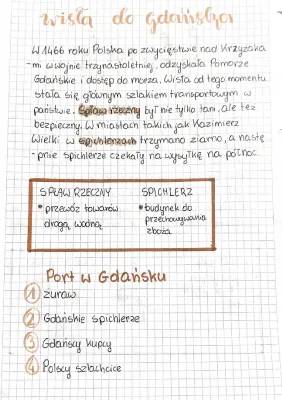 Wisła do Gdańska
W 1466 roku Polska po zwycięstwie nad Krzyżaka
-mi w wojnie trzynastoletniej, odzyskała Pomorze
Gdańskie i dostęp do morza. Wisła od tego momentu
stała się głównym szlakiem transportowym w
państwie. Spław rzeczny był nie tylko tani, ale też
bezpieczny. W miastach takich jak Kazimierz
Wielki w spichlerzach trzymano ziarno, a nastę
-pnie spichlerze czekały na wysyłkę na północ.
SPŁAW RZECZNY
• przewóz towarów
drogą wodną
SPICHLERZ
• budynek do
przechowywania
zboża
Port w Gdańsku
1 żuraw
2 Gdańskie spichlerze
3 Gdańscy kupcy
4 Polscy szlachcice